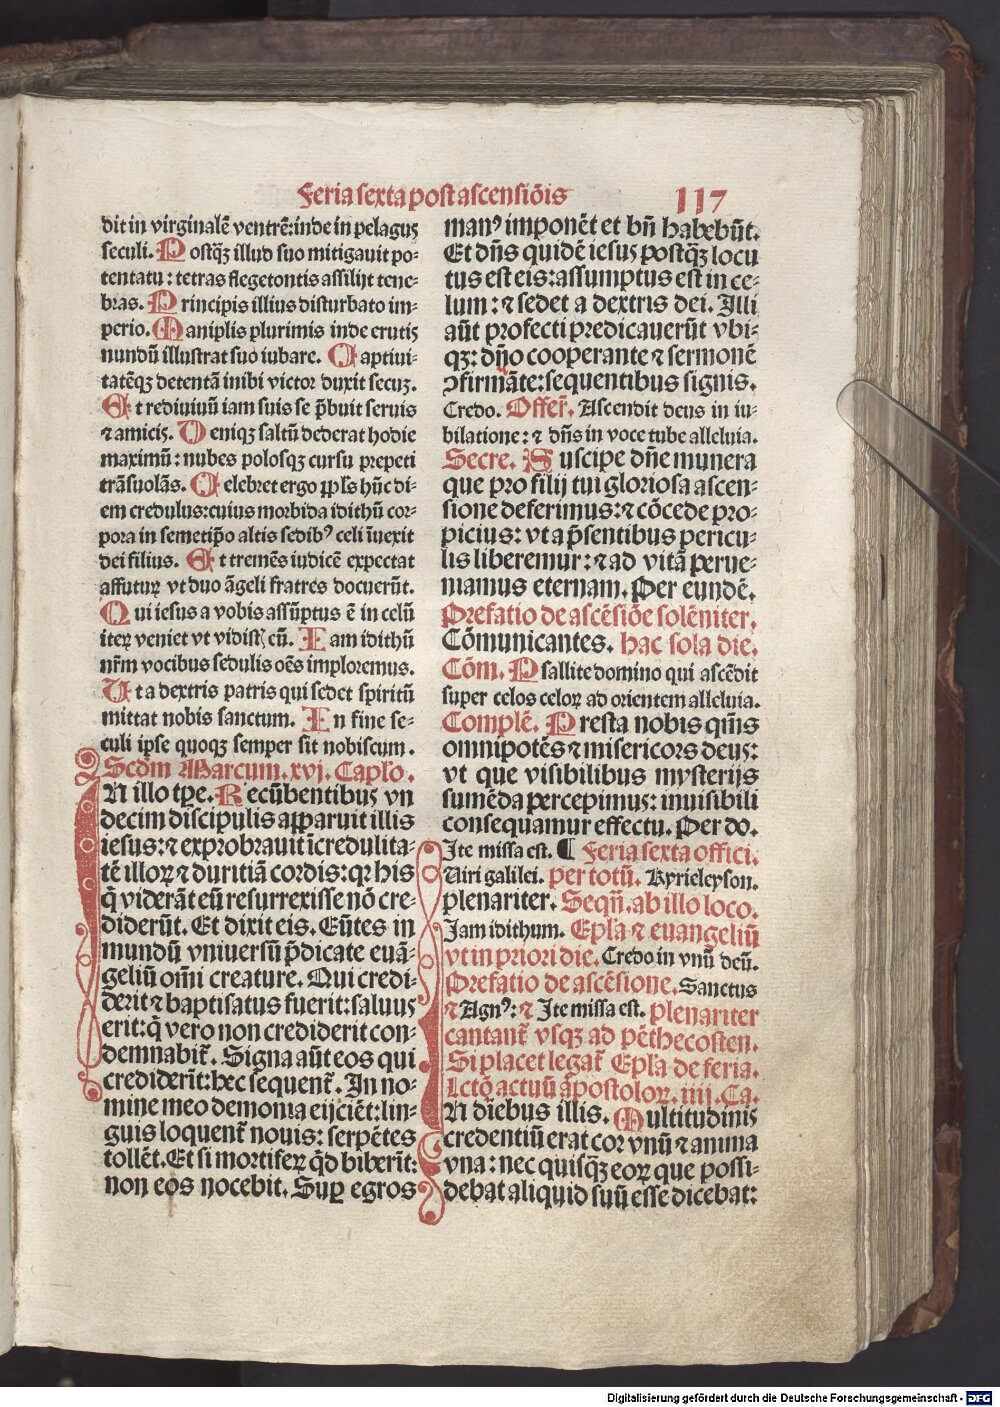 Feria sexta post ascensiōis 117
dit in virginalē ventrē:inde in pelagus
seculi. Postq̄ꝫ illud suo mitigauit po⸗
tentatu : tetras flegetontis assilijt tene⸗
bras. Principis illius disturbato im⸗
perio. Maniplis plurimis inde erutis
mundū illustrat suo iubare. Captiui⸗
tatēqꝫ detentā inibi victor duxit secuꝫ.
Et rediuiuū iam suis se p̄buit seruis
⁊ amicis. Deniqꝫ saltū dederat hodie
maximū : nubes polosqꝫ cursu prepeti
trāsuolās. Celebret ergo ppl̓s hūc di⸗
em credulus:cuius morbida idithū cor⸗
pora in semetip̄o altis sedibꝰ celi īuexit
dei filius. Et tremēs iudicē expectat
affuturꝝ vt duo āgeli fratres docuerūt.
Qui iesus a vobis assūptus ē in celū
iterꝝ veniet vt vidistꝭ eū. Iam idithū
nr̄m vocibus sedulis oēs imploremus.
Ut a dextris patris qui sedet spiritū
mittat nobis sanctum. In fine se⸗
culi ipse quoqꝫ semper sit nobiscum.
Scdm Marcum. xvj. Caplo.
IN illo tpe. Recūbentibus vn
decim discipulis apparuit illis
iesus:⁊ exprobrauit īcredulita⸗
tē illoꝝ ⁊ duritiā cordis:qꝛ his
q̄ viderāt eū resurrexisse nō cre⸗
diderūt. Et dixit eis. Eūtes in
mundū vniuersū p̄dicate euā⸗
geliū om̄i creature. Qui credi⸗
derit ⁊ baptisatus fuerit:saluus
erit:q̄ vero non crediderit con⸗
demnabit̄. Signa aūt eos qui
crediderīt:hec sequent̄. In no⸗
mine meo demonia eijciēt:lin⸗
guis loquent̄ nouis: serpētes
tollēt. Et si mortiferꝝ q̄d biberīt:
non eos nocebit. Suꝑ egros
manꝰ imponēt et bn̄ habebūt.
Et dn̄s quidē iesus postq̄ꝫ locu
tus est eis:assumptus est in ce⸗
lum : ⁊ sedet a dextris dei. Illi
aūt profecti predicauerūt vbi⸗
qꝫ: dn̄o cooperante ⁊ sermonē
ꝯfirmāte:sequentibus signis.
Credo. Offer̄. Ascendit deus in iu⸗
bilatione : ⁊ dn̄s in voce tube alleluia.
Secre. Suscipe dn̄e munera
que pro filij tui gloriosa ascen⸗
sione deferimus:⁊ cōcede pro⸗
picius: vt a p̄sentibus pericu⸗
lis liberemur: ⁊ ad vitā perue⸗
niamus eternam. Per eundē.
Prefatio de ascēsiōe solēniter.
Cōmunicantes. hac sola die.
Cōm. Psallite domino qui ascēdit
super celos celoꝝ ad orientem alleluia.
Complē. Presta nobis qm̄s
omnipotēs ⁊ misericors deus:
vt que visibilibus mysterijs
sumēda percepimus: inuisibili
consequamur effectu. Per do.
Ite missa est. ¶ Feria sexta offici.
Uiri galilei. per totū. Kyrieleyson.
plenariter. Seqn̄. ab illo loco.
Jam idithum. Epl̓a ⁊ euangeliū
vt in priori die. Credo in vnū deū.
Prefatio de ascēsione. Sanctus
⁊ Agnꝰ: ⁊ Ite missa est. plenariter
cantant̄ vsqꝫ ad pēthecosten.
Si placet legat̄ Epl̓a de feria.
Lctō actuū apostoloꝝ. iiij. Ca.
IN diebus illis. Multitudinis
credentiū erat cor vnū ⁊ anima
vna: nec quisq̄ꝫ eoꝝ que possi⸗
debat aliquid suū esse dicebat:
Digitalisierung gefördert durch die Deutsche Forschungsgemeinschaft - DFG